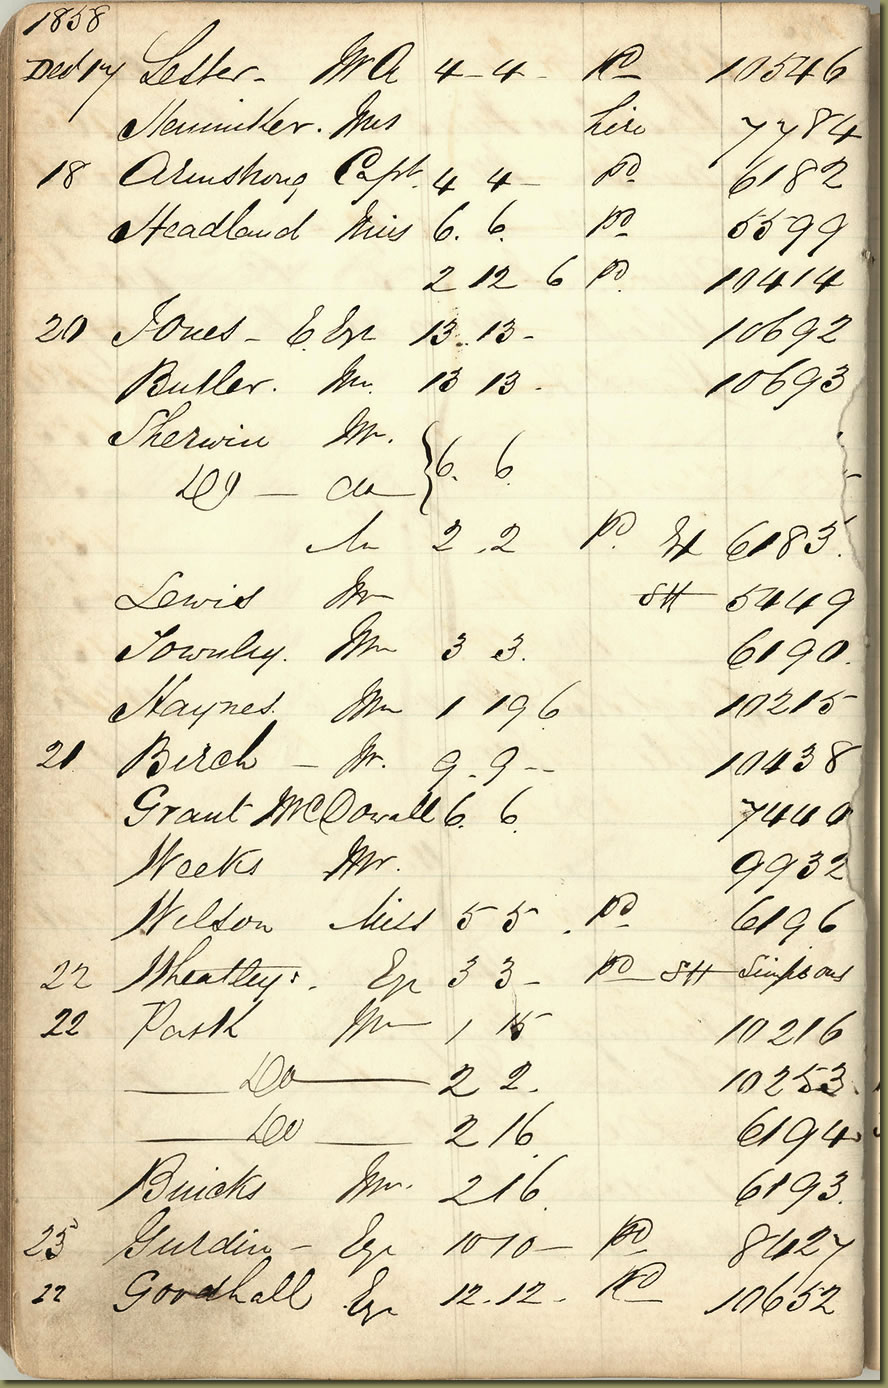 1858
Dec 17 Lester - Mr A 4-4- Pd 10546
Mrs hire 7784
18 Armstrong Capt. 4 4- Pd 6182
Headland Miss 6. 6. Pd 5599
2 12 6 Pd. 10414
20 Jones - E. Esqr 13.13- 10692
Butler. Mr. 13 13. 10693
Sherwin Mr. 6. 6.
Do — do
2.2 Pd 6183.
Lewis Mr SH 5449
Townley. Mr 3 3. 6190.
Haynes. Mr 1 19 6 10215
21 Birch - Mr. 9.9-- 10438
Grant McDowall 6. 6. 7440
Weeks Mr. 9932
Wilson Miss 5 5. Pd 6196
22 Wheatley. Esqr 3 3- Pd SH Simpsons
22 Pask Mr 1 15 10216
— Do — 2 2. 10253.
— Do — 2 16 6194.
Buicks Mr. 2 16. 6193.
23 Gurdin - Esqr 10 10- Pd 8427
22 Goodhall Esqr 12.12. Pd 10652